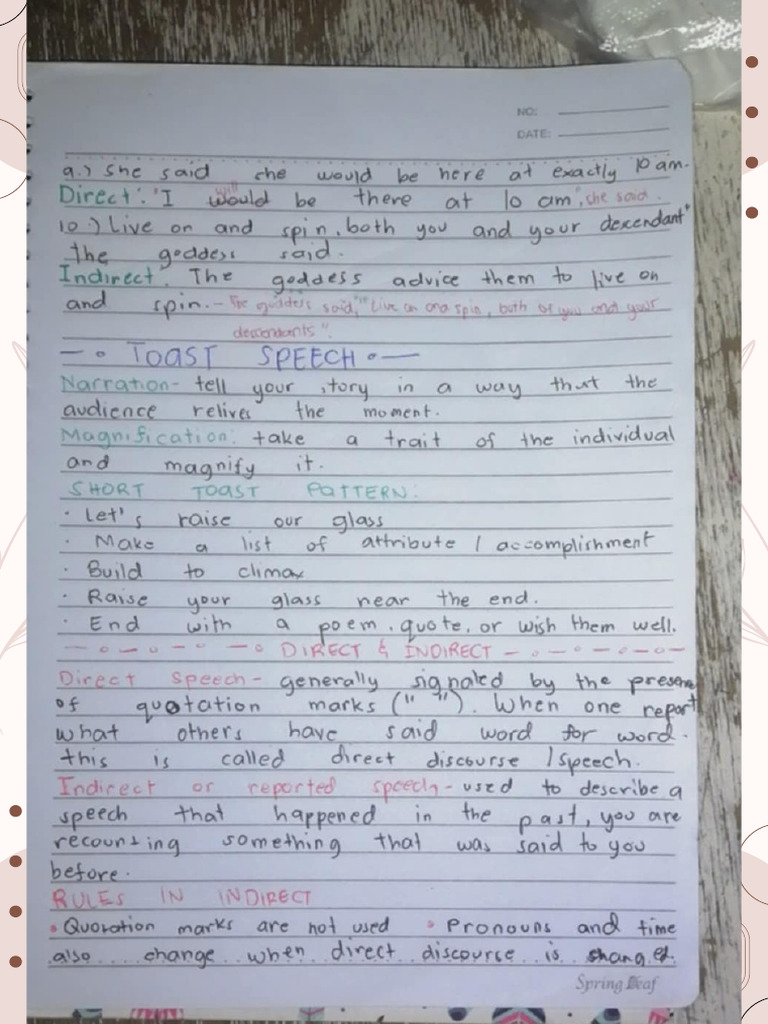 NO:
DATE:
9.) She said she would be here at exactly 10 am.
will
Direct: "I would be there at 10 am", she said.
10.) Live on and spin, both you and your descendant"
the goddess said.
Indirect: The goddess advice them to live on
and spin. - The goddess said, "Live on and spin, both of you and your
descendants".
TOAST SPEECH
Narration - tell your story in a way that the
audience relives the moment.
Magnification: take a trait of the individual
and magnify it.
SHORT TOAST PATTERN:
· Let's raise our glass
· Make a list of attribute / accomplishment
· Build to climax
· Raise your glass near the end.
· End with a poem, quote, or wish them well.
DIRECT & INDIRECT
Direct Speech - generally signaled by the presence
of quotation marks (" "). When one report
what others have said word for word.
this is called direct discourse / speech.
Indirect or reported speech - used to describe a
speech that happened in the past, you are
recounting something that was said to you
before.
RULES IN INDIRECT
• Quotation marks are not used • Pronouns and time
also change when direct discourse is changed.
Spring Leaf